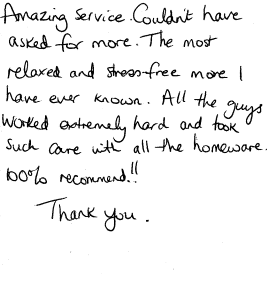 Amazing service. Couldn't have
asked for more. The most
relaxed and stress-free move I
have ever known. All the guys
worked extremely hard and took
such care with all the homeware.
100% recommend!!
Thank you.